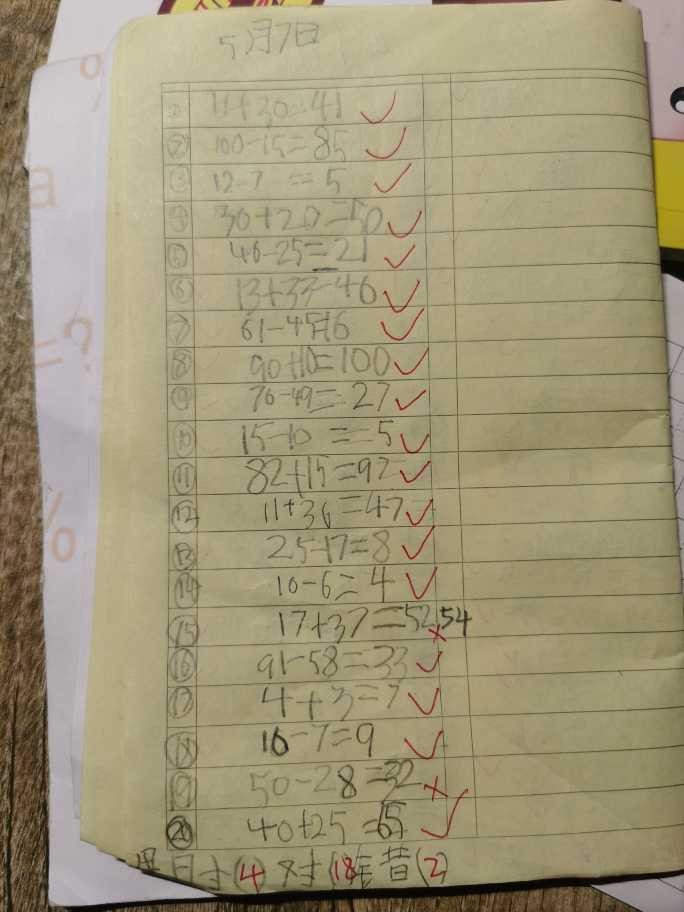 5月7日
① 11+30=41 ✓
② 100-15=85 ✓
③ 12-7 =5 ✓
④ 30+20=50 ✓
⑤ 46-25=21 ✓
⑥ 13+33=46 ✓
⑦ 61-45=16 ✓
⑧ 90+10=100 ✓
⑨ 76-49=27 ✓
⑩ 15-10 =5 ✓
⑪ 82+15=97 ✓
⑫ 11+36=47 ✓
⑬ 25-17=8 ✓
⑭ 10-6=4 ✓
⑮ 17+37=52 54 ×
⑯ 91-58=33 ✓
⑰ 4+3=7 ✓
⑱ 16-7=9 ✓
⑲ 50-28=32 ×
⑳ 40+25=65 ✓
用时(4)对(18)错(2)
a
=?
%